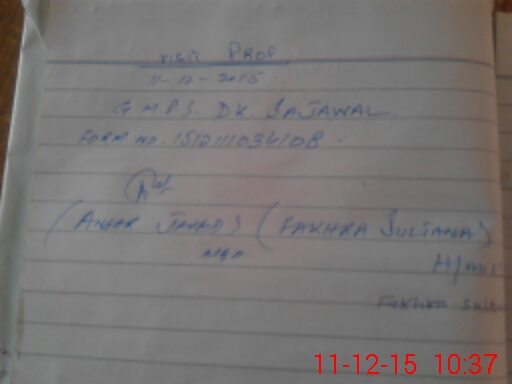 VISIT PROF.
11-12-2015
G.M.P.S. DK. SAJAWAL.
FORM NO. 151211103410B.
(ANSAR JAVED) (FAKHRA SULTANA)
MEA. H/M
Fakhra Sult
11-12-15 10:37